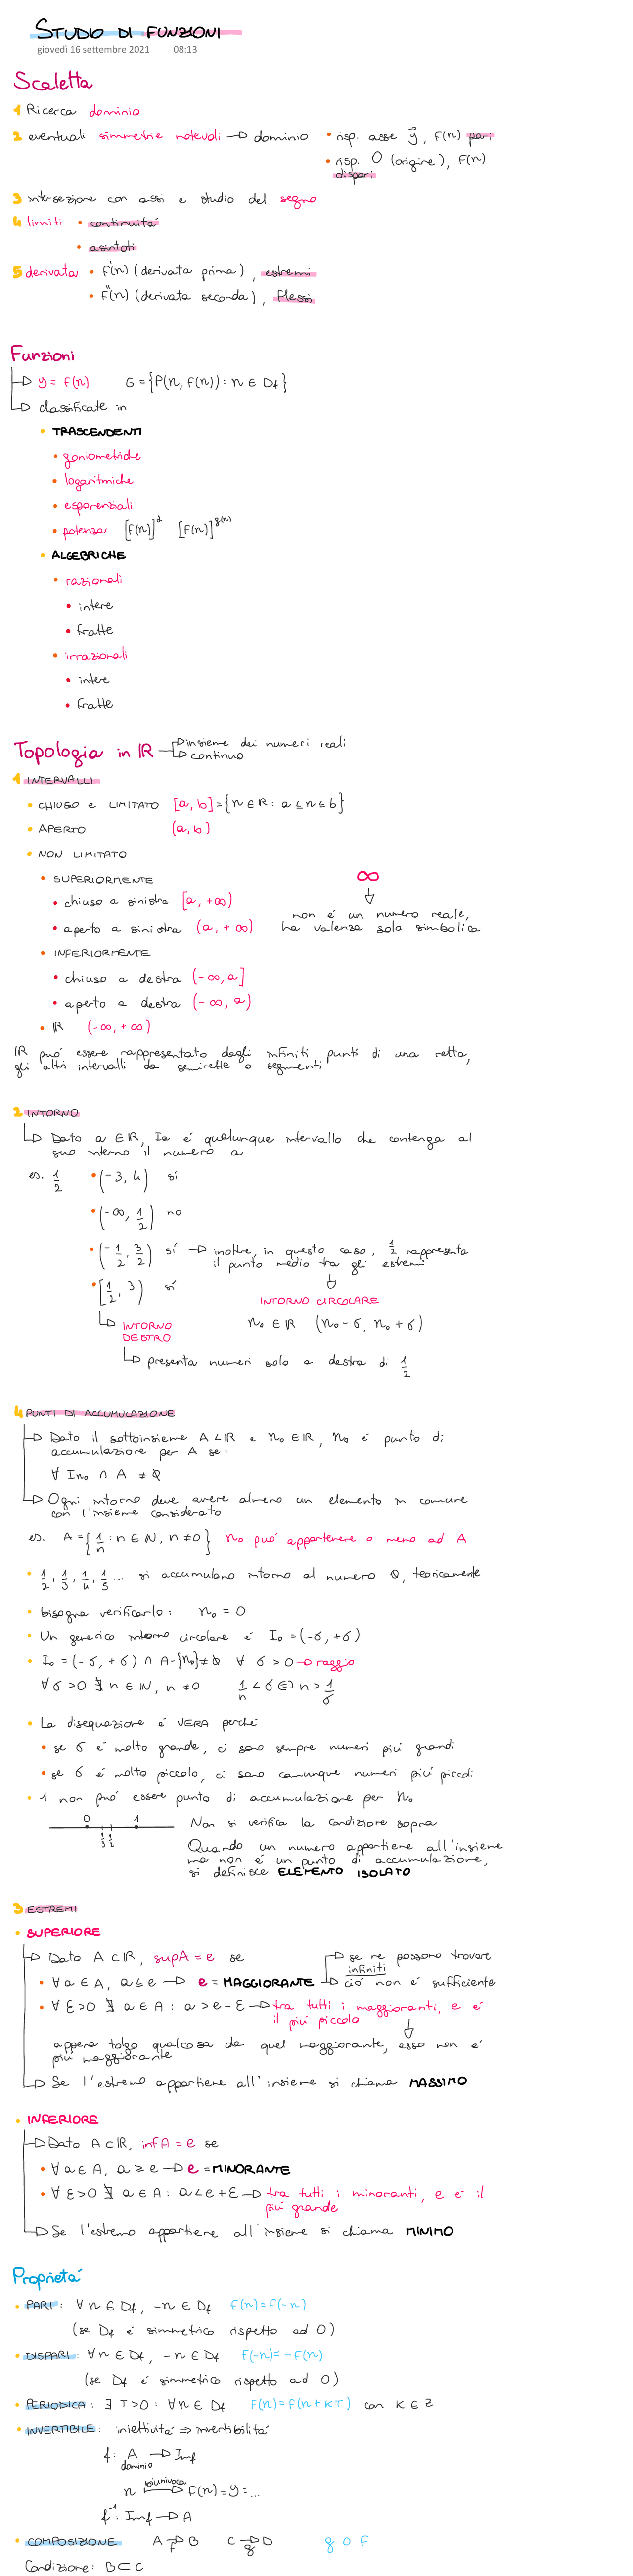 STUDIO DI FUNZIONI
giovedì 16 settembre 2021 08:13
Scaletta
1 Ricerca dominio
2 eventuali simmetrie notevoli → dominio • risp. asse y, F(n) pari
• risp. O (origine), F(n)
dispari
3 intersezione con assi e studio del segno
4 limiti • continuità
• asintoti
5 derivata • F'(n) (derivata prima), estremi
• F''(n) (derivata seconda), flessi
Funzioni
→ y = F(n) G = {P(n, F(n)) : n ∈ Df}
→ classificate in
• TRASCENDENTI
• goniometriche
• logaritmiche
• esponenziali
• potenza [F(n)]^2 [F(n)]^g(n)
• ALGEBRICHE
• razionali
• intere
• fratte
• irrazionali
• intere
• fratte
Topologia in IR → insieme dei numeri reali
→ continuo
1 INTERVALLI
• CHIUSO e LIMITATO [a, b] = {n ∈ IR : a ≤ n ≤ b}
• APERTO (a, b)
• NON LIMITATO
• SUPERIORMENTE ∞
• chiuso a sinistra [a, +∞)
non é un numero reale,
• aperto a sinistra (a, +∞) ha valenza solo simbolica
• INFERIORMENTE
• chiuso a destra (-∞, a]
• aperto a destra (-∞, a)
• IR (-∞, +∞)
IR può essere rappresentato dagli infiniti punti di una retta,
gli altri intervalli da semirette o segmenti
2 INTORNO
→ Dato a ∈ IR, Ia é qualunque intervallo che contenga al
suo interno il numero a
es. 1/2 • (-3, 4) sí
• (-∞, 1/2) no
• (-1/2, 3/2) sí → inoltre, in questo caso, 1/2 rappresenta
il punto medio tra gli estremi
• [1/2, 3) sí
INTORNO CIRCOLARE
→ INTORNO DESTRO n₀ ∈ IR (n₀ - σ, n₀ + σ)
→ presenta numeri solo a destra di 1/2
4 PUNTI DI ACCUMULAZIONE
→ Dato il sottoinsieme A < IR e n₀ ∈ IR, n₀ é punto di
accumulazione per A se:
∀ In₀ ∩ A ≠ Ø
→ Ogni intorno deve avere almeno un elemento in comune
con l'insieme considerato
es. A = {1/n : n ∈ IN, n ≠ 0} n₀ può appartenere o meno ad A
• 1/2, 1/3, 1/4, 1/5 ... si accumulano intorno al numero 0, teoricamente
• bisogna verificarlo: n₀ = 0
• Un generico intorno circolare é I₀ = (-σ, +σ)
• I₀ = (-σ, +σ) ∩ A - {n₀} ≠ Ø ∀ σ > 0 → raggio
∀ σ > 0 ∃ n ∈ IN, n ≠ 0 1/n < σ ⇔ n > 1/σ
• La disequazione é VERA perché
• se σ é molto grande, ci sono sempre numeri più grandi
• se σ é molto piccolo, ci sono comunque numeri più piccoli
• 1 non può essere punto di accumulazione per n₀
0 1/3 1/2 1 Non si verifica la condizione sopra
Quando un numero appartiene all'insieme
ma non é un punto di accumulazione,
si definisce ELEMENTO ISOLATO
3 ESTREMI
• SUPERIORE
→ Dato A ⊂ IR, supA = e se → se ne possono trovare infiniti
• ∀ a ∈ A, a ≤ e → e = MAGGIORANTE → ció non é sufficiente
• ∀ ε > 0 ∃ a ∈ A : a > e - ε → tra tutti i maggioranti, e é
il più piccolo
appena tolgo qualcosa da quel maggiorante, esso non é
più maggiorante
→ Se l'estremo appartiene all'insieme si chiama MASSIMO
• INFERIORE
→ Dato A ⊂ IR, infA = e se
• ∀ a ∈ A, a ≥ e → e = MINORANTE
• ∀ ε > 0 ∃ a ∈ A : a < e + ε → tra tutti i minoranti, e é il
più grande
→ Se l'estremo appartiene all'insieme si chiama MINIMO
Proprietà
• PARI : ∀ n ∈ Df, -n ∈ Df F(n) = F(-n)
(se Df é simmetrico rispetto ad 0)
• DISPARI : ∀ n ∈ Df, -n ∈ Df F(-n) = -F(n)
(se Df é simmetrico rispetto ad 0)
• PERIODICA : ∃ T > 0 : ∀ n ∈ Df F(n) = F(n + KT) con K ∈ Z
• INVERTIBILE : iniettività ⇒ invertibilità
f : A → Imf
dominio
n biunivoca → F(n) = y = ...
f⁻¹ : Imf → A
• COMPOSIZIONE A →f B C →g D g o F
Condizione: B ⊂ C